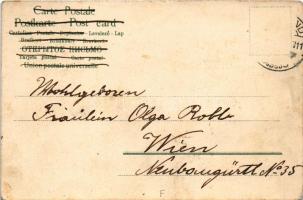 Carte Postale
Postkarte Post card
Cartolina Postale Levelező-Lap
ОТКРЫТОЕ ПИСЬМО
Union postale universelle
Wohlgeboren
Fräulein Olga Roble
Wien
Neubaugürtl No 35
F